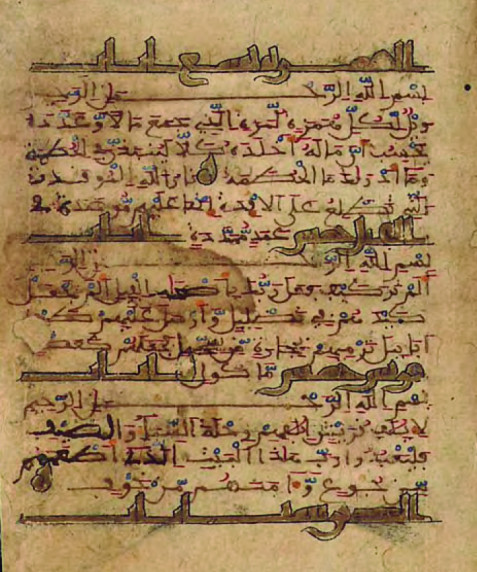 بسم الله الرحمن الرحيم
ويل لكل همزة لمزة الذي جمع مالا وعدده
يحسب أن ماله أخلده كلا لينبذن في الحطمة
وما أدريك ما الحطمة نار الله الموقدة
التي تطلع على الأفئدة إنها عليهم مؤصدة في
عمد ممددة
بسم الله الرحمن الرحيم
ألم تر كيف فعل ربك بأصحب الفيل ألم يجعل
كيدهم في تضليل وأرسل عليهم طيرا
أبابيل ترميهم بحجارة من سجيل فجعلهم كعصف
مأكول
بسم الله الرحمن الرحيم
لإيلف قريش إلفهم رحلة الشتاء والصيف
فليعبدوا رب هذا البيت الذي أطعمهم
من جوع وآمنهم من خوف